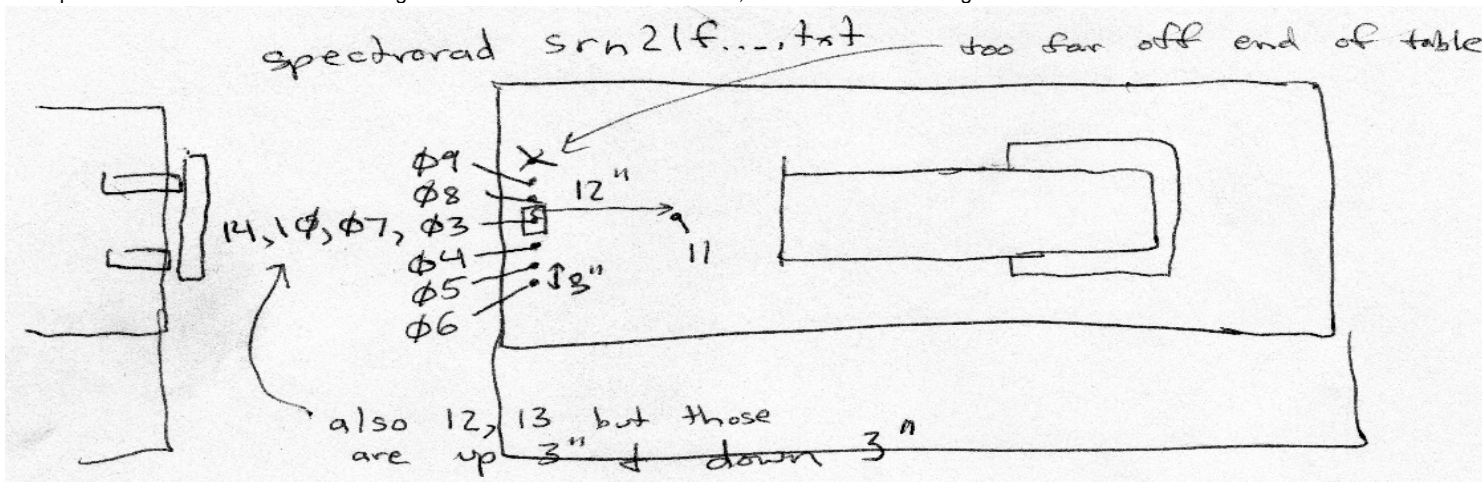 spectrorad srn21f....txt too far off end of table
φ9
φ8 12"
14, 1φ, φ7, φ3
11
φ4
φ5 3"
φ6
also 12, 13 but those
are up 3" & down 3"